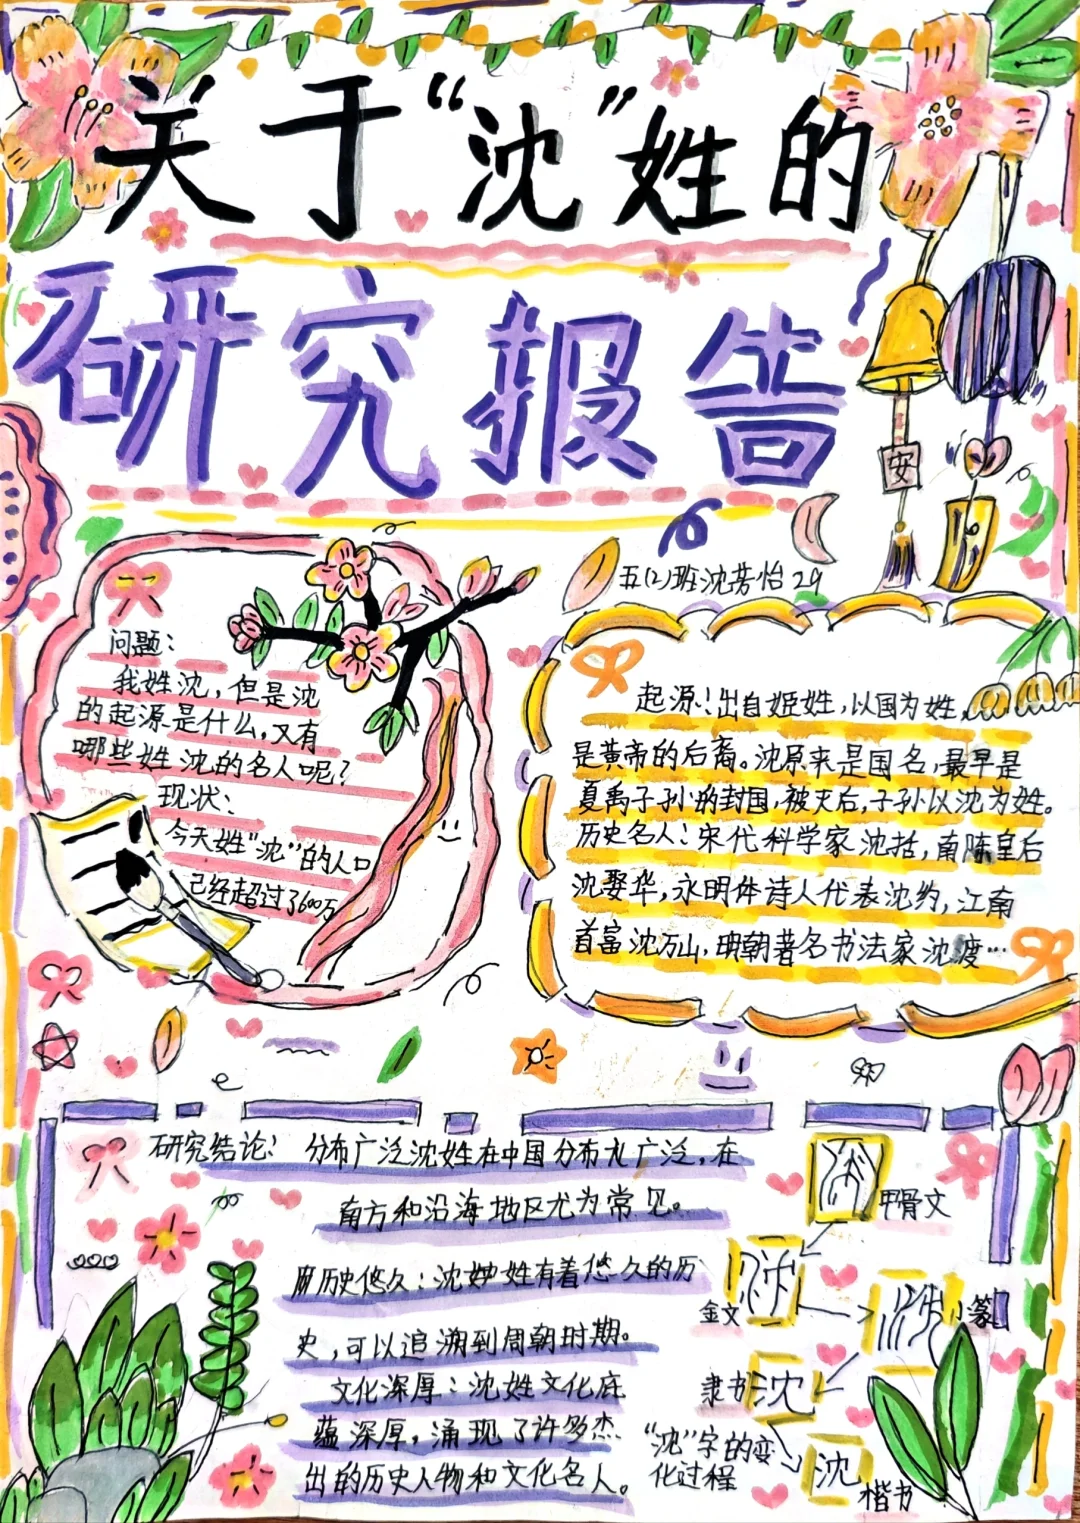 关于“沈”姓的
研究报告
安
五(2)班沈芳怡29
问题:
我姓沈,但是沈
的起源是什么,又有
哪些姓沈的名人呢?
现状:
今天姓“沈”的人口
已经超过了600万
起源:出自姬姓,以国为姓,
是黄帝的后裔。沈原来是国名,最早是
夏禹子孙的封国,被灭后,子孙以沈为姓。
历史名人:宋代科学家沈括,南陈皇后
沈婺华,永明体诗人代表沈约,江南
首富沈万山,明朝著名书法家沈度…
研究结论: 分布广泛沈姓在中国分布广泛,在
南方和沿海地区尤为常见。
历史悠久:沈姓有着悠久的历
史,可以追溯到周朝时期。
文化深厚:沈姓文化底
蕴深厚,涌现了许多杰
出的历史人物和文化名人。
甲骨文
金文
小篆
隶书 沈
沈 楷书
“沈”字的变
化过程